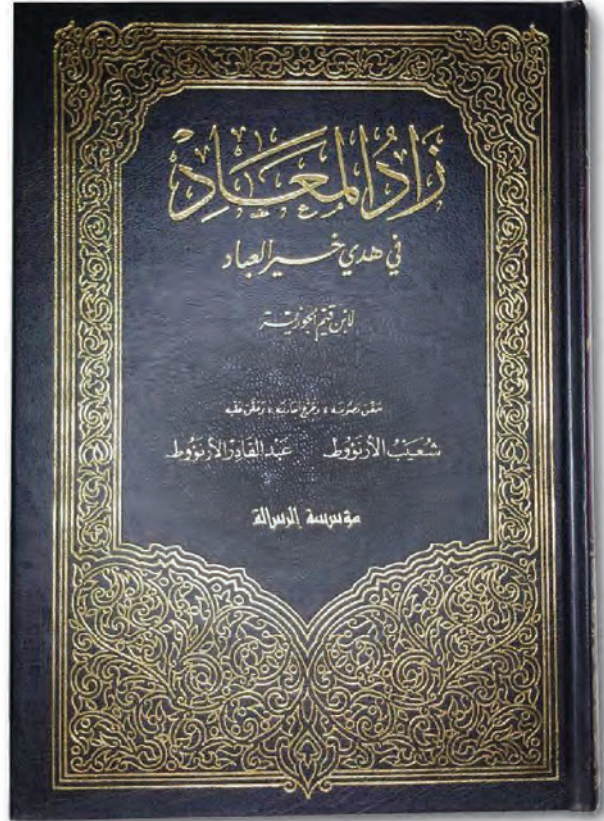 زَادُ المَعَادِ
في هدي خير العباد
لابن قيم الجوزية
حقق نصوصه، وخرج أحاديثه، وعلق عليه
شُعَيْبُ الأَرْنَؤُوط عَبْدُ القَادِرِ الأَرْنَؤُوط
مؤسسة الرسالة